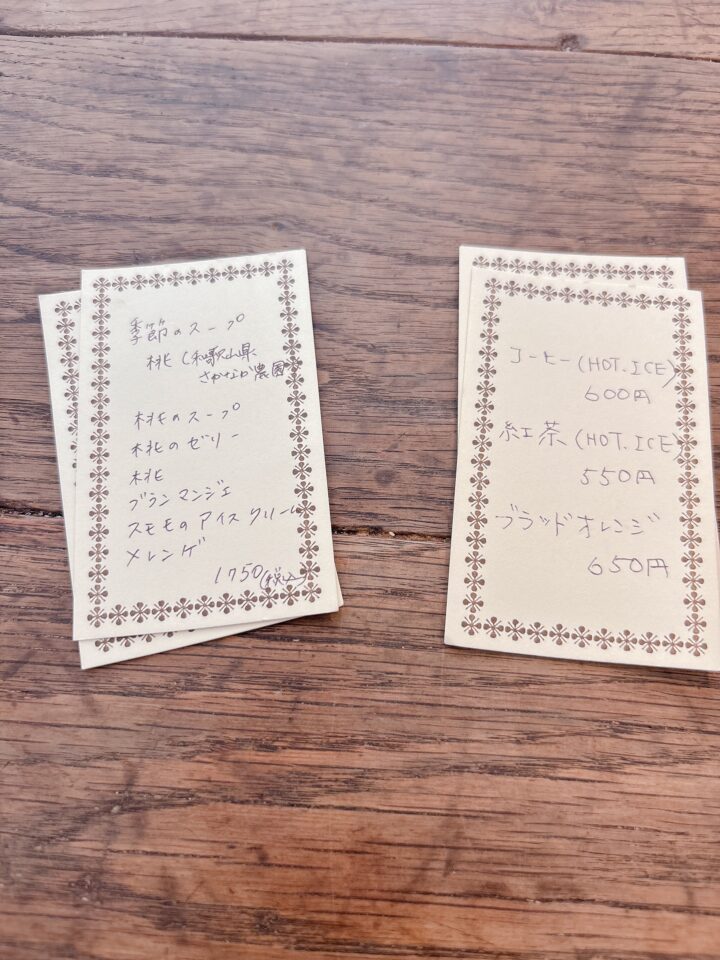 季節のスープ
桃(和歌山県
さかなか農園
桃のスープ
桃のゼリー
桃
ブランマンジェ
スモモのアイスクリーム
メレンゲ
1750(税込)
コーヒー(HOT.ICE)
600円
紅茶(HOT.ICE)
550円
ブラッドオレンジ
650円